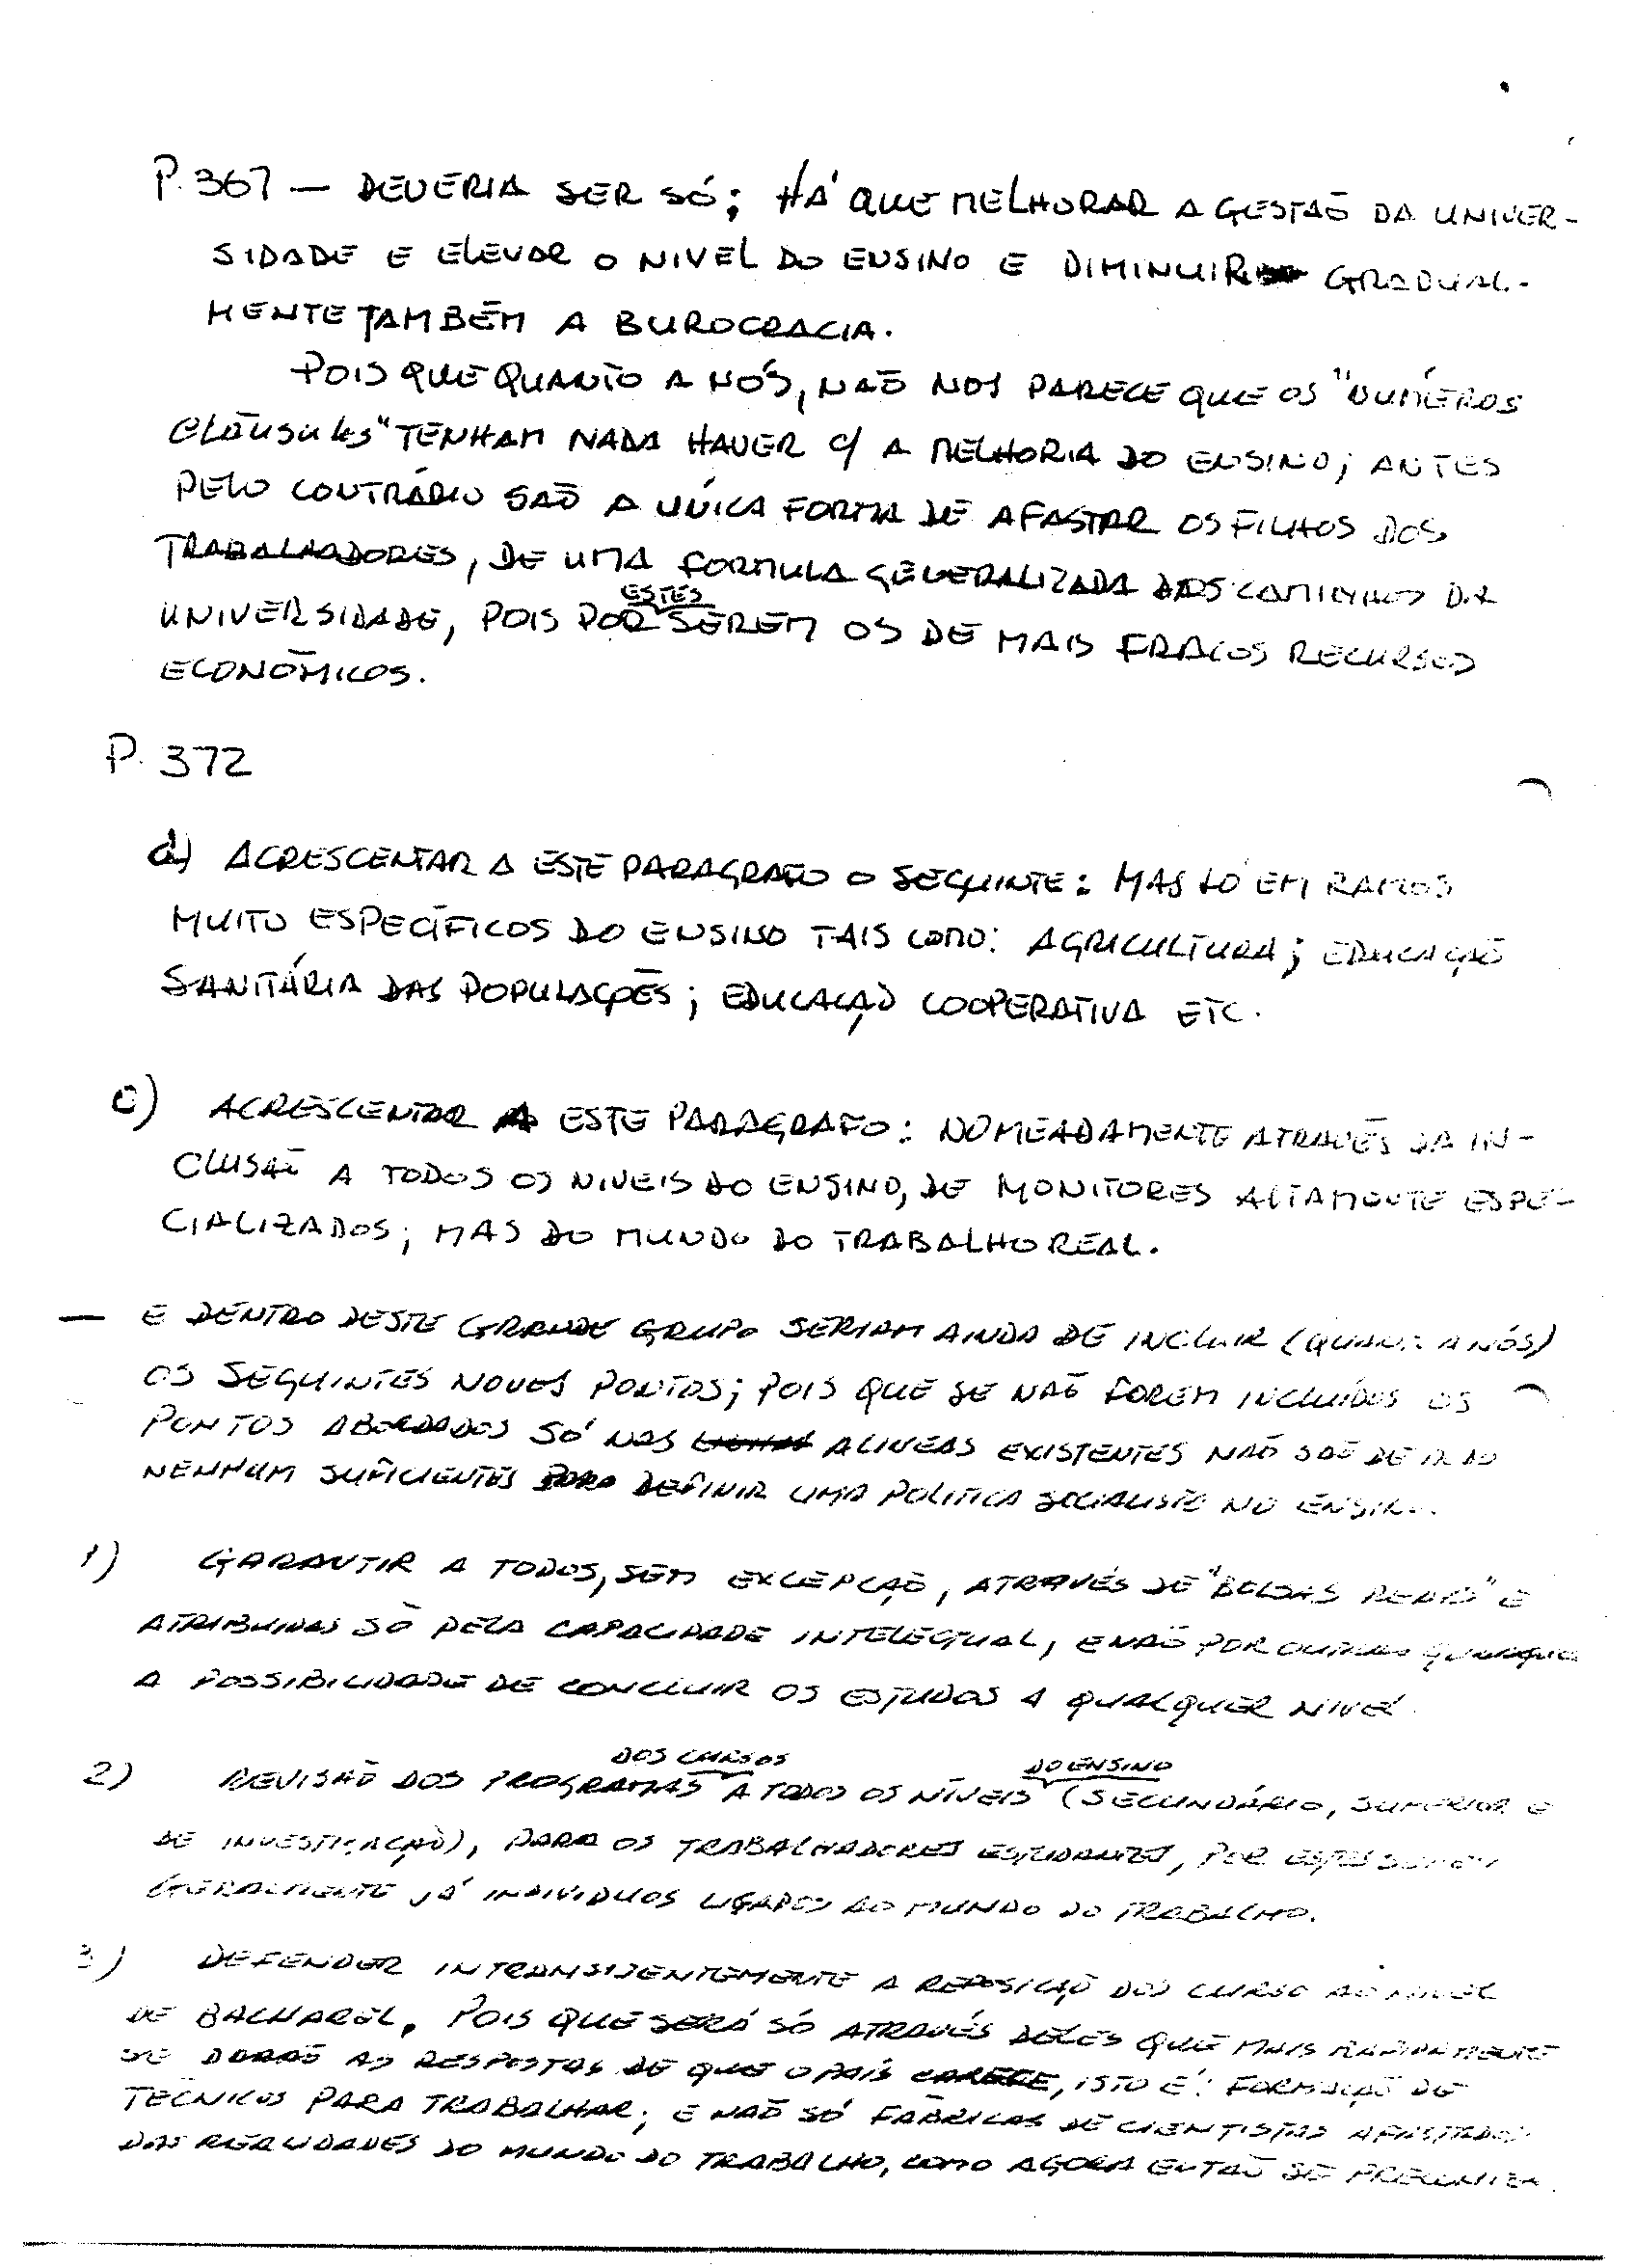 P. 367 — DEVERIA SER SÓ; HÁ QUE MELHORAR A GESTAÕ DA UNIVER-
SIDADE E ELEVAR O NIVEL DO ENSINO E DIMINUIR GRADUAL-
MENTE TAMBÉM A BUROCRACIA.
POIS QUE QUANTO A NÓS, NAÕ NOS PARECE QUE OS "NUMÉROS
CLÁUSULUS" TENHAM NADA HAVER C/ A MELHORIA DO ENSINO; ANTES
PELO CONTRÁRIO SAÕ A UNICA FORMA DE AFASTAR OS FILHOS DOS
TRABALHADORES, DE UMA FORMULA GENERALIZADA DOS CAMINHOS DA
UNIVERSIDADE, POIS POR ESTES SEREM OS DE MAIS FRACOS RECURSOS
ECONÓMICOS.
P. 372
d) ACRESCENTAR A ESTE PARAGRAFO O SEGUINTE: MAS SÓ EM RAMOS
MUITO ESPECÍFICOS DO ENSINO TAIS COMO: AGRICULTURA; EDUCAÇAÕ
SANITÁRIA DAS POPULAÇÕES; EDUCAÇAÕ COOPERATIVA ETC.
e) ACRESCENTAR A ESTE PARAGRAFO: NOMEADAMENTE ATRAVÉS DA IN-
CLUSAÕ A TODOS OS NIVEIS DO ENSINO, DE MONITORES ALTAMENTE ESPE-
CIALIZADOS; MAS DO MUNDO DO TRABALHO REAL.
— E DENTRO DESTE GRANDE GRUPO SERIAM AINDA DE INCLUIR (QUANTO A NÓS)
OS SEGUINTES NOVOS PONTOS; POIS QUE SE NAÕ FOREM INCLUÍDOS OS
PONTOS ABORDADOS SÓ NAS ALINEAS EXISTENTES NAÕ SAÕ DE MODO
NENHUM SUFICIENTES PARA DEFINIR UMA POLITICA SOCIALISTA NO ENSINO.
1) GARANTIR A TODOS, SEM EXCEPÇAÕ, ATRAVÉS DE "BOLSAS REAIS" E
ATRIBUIDAS SÓ PELA CAPACIDADE INTELECTUAL, E NAÕ POR OUTRAS
A POSSIBILIDADE DE CONCLUIR OS ESTUDOS A QUALQUER NIVEL.
2) REVISAÕ DOS PROGRAMAS DOS CURSOS A TODOS OS NÍVEIS DO ENSINO (SECUNDÁRIO, SUPERIOR E
DE INVESTIGAÇAÕ), PARA OS TRABALHADORES ESTUDANTES, POR ESTES SEREM
GERALMENTE JÁ INDIVIDUOS LIGADOS AO MUNDO DO TRABALHO.
3) DEFENDER INTRANSIJENTEMENTE A REPOSIÇAÕ DOS CURSO AO NIVEL
DE BACHAREL, POIS QUE SERÁ SÓ ATRAVÉS DELES QUE MAIS RAPIDAMENTE
SE DARAÕ AS RESPOSTAS DE QUE O PAÍS CARECE, ISTO É: FORMAÇAÕ DE
TÉCNICOS PARA TRABALHAR; E NAÕ SÓ FÁBRICAS DE CIENTISTAS AFASTADOS
DAS REALIDADES DO MUNDO DO TRABALHO, COMO AGORA ENTAÕ SE